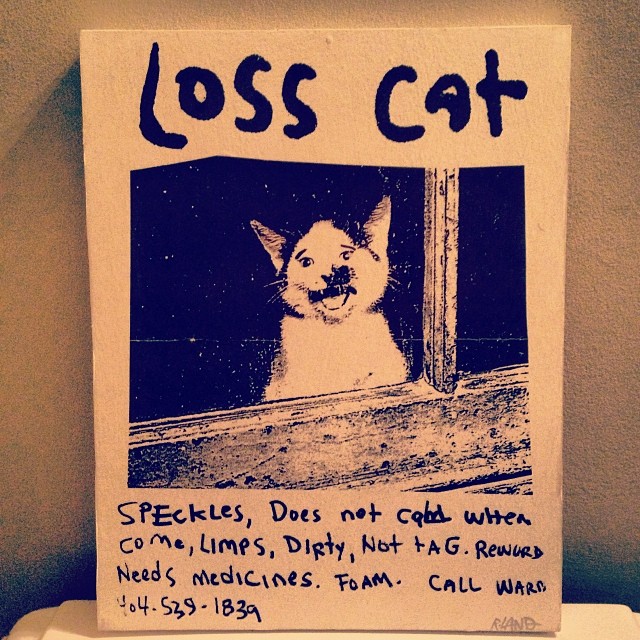 LOSS CAT
SPECKLES, DOES not call when
come, LIMPS, DIRTY, Not tAG. REWURD
Needs medicines. FOAM. CALL WARD
404-539-1839